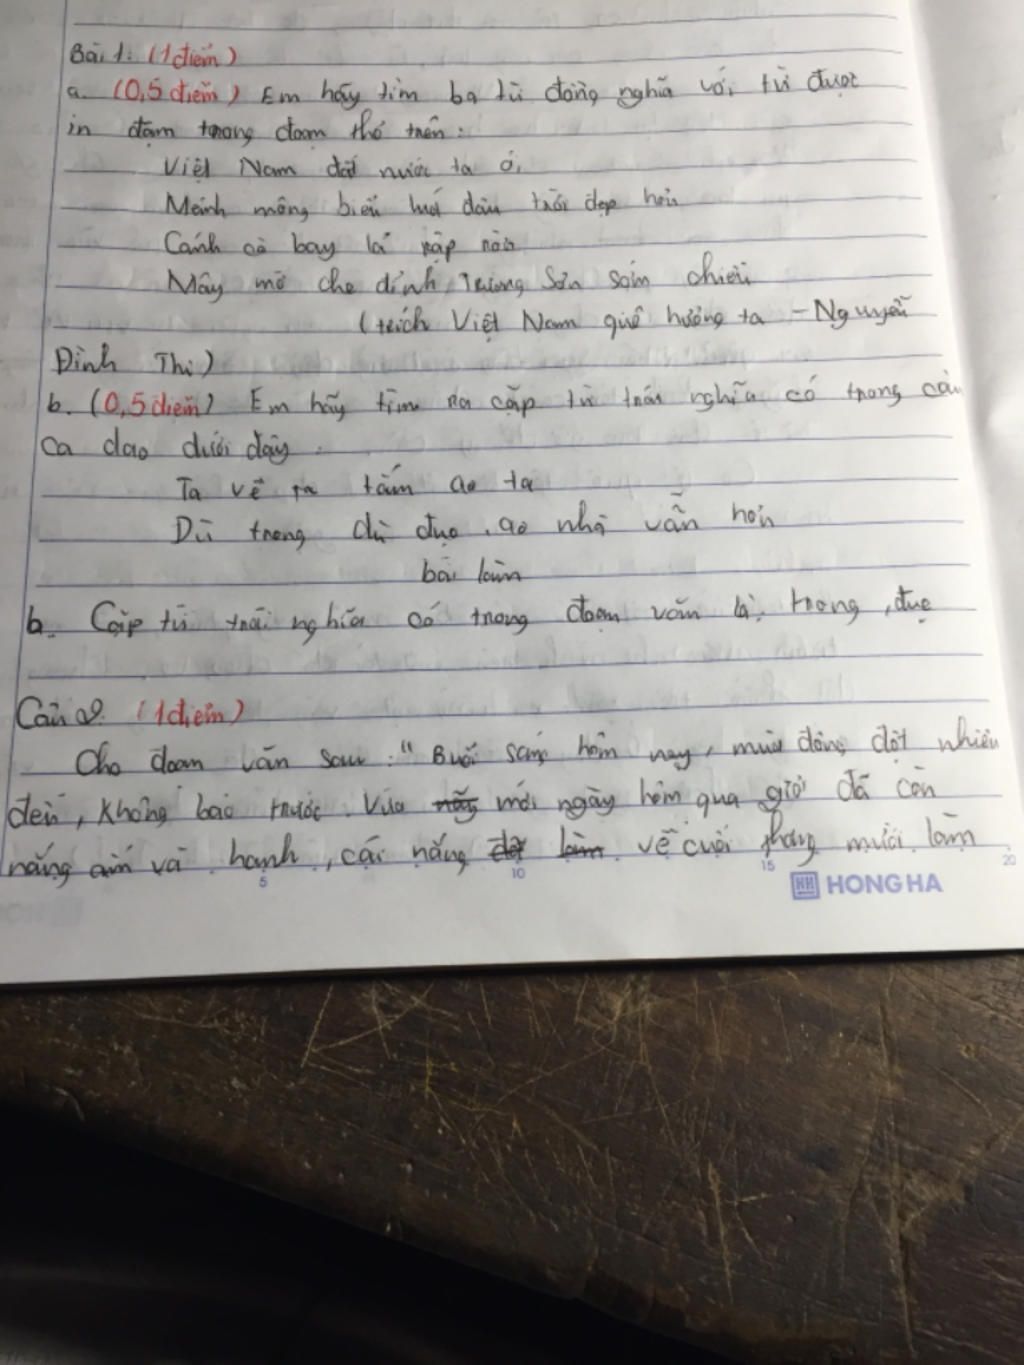 Bài 1: (1 điểm)
a. (0,5 điểm) Em hãy tìm ba từ đồng nghĩa với từ được
in đậm trong đoạn thơ trên:
Việt Nam đất nước ta ơi
Mênh mông biển lúa đâu trời đẹp hơn
Cánh cò bay lả rập rờn
Mây mờ che đỉnh Trường Sơn sớm chiều
(trích Việt Nam quê hương ta - Nguyễn
Đình Thi)
b. (0,5 điểm) Em hãy tìm ra cặp từ trái nghĩa có trong câu
ca dao dưới đây:
Ta về ta tắm ao ta
Dù trong dù đục, ao nhà vẫn hơn
bài làm
b. Cặp từ trái nghĩa có trong đoạn văn là: trong, đục
Câu 2. (1 điểm)
Cho đoạn văn sau: "Buổi sáng hôm nay, mùa đông đột nhiên
đến, không báo trước. Vừa mới ngày hôm qua giời đã còn
nắng ấm và hanh, cái nắng về cuối tháng mười làm
5 10 15 20
HH HONG HA